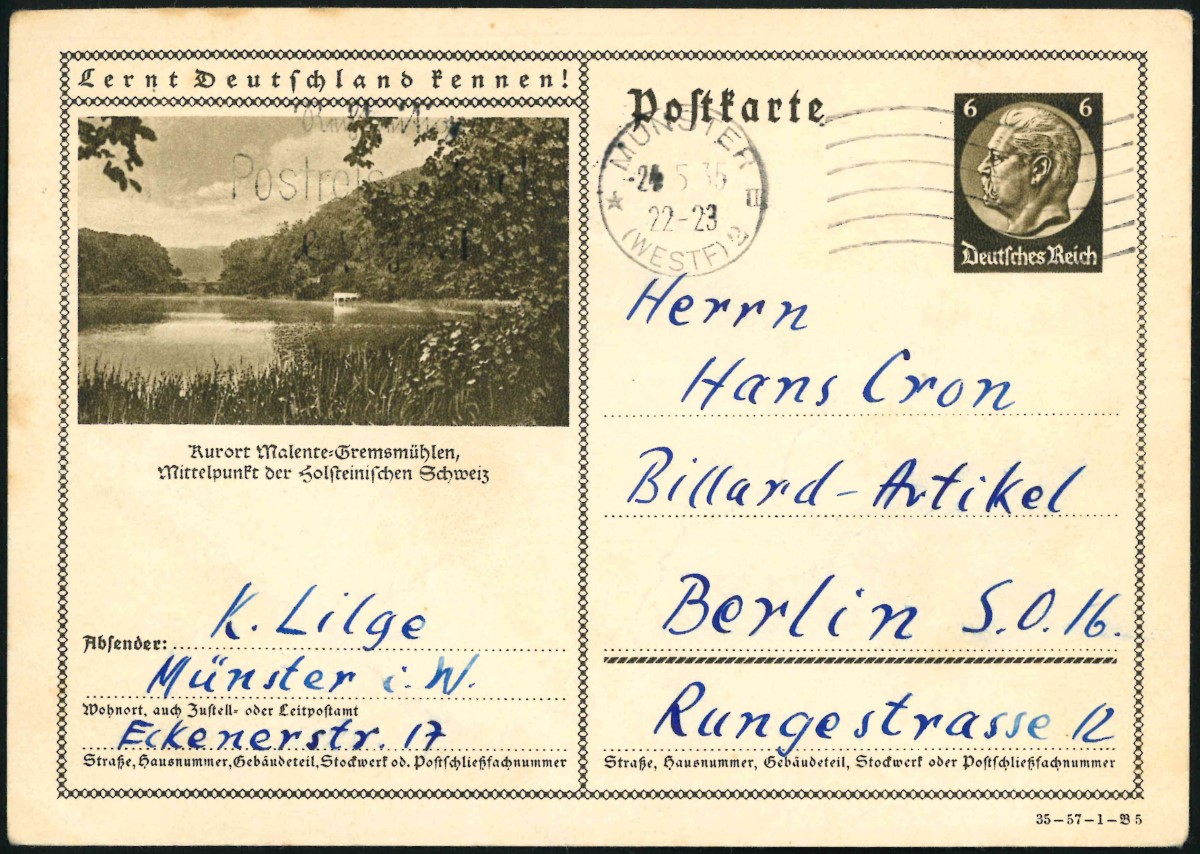 Lernt Deutschland kennen!
Postreisescheck
Kurort Malente-Gremsmühlen,
Mittelpunkt der Holsteinischen Schweiz
K. Lilge
Absender:
Münster i. W.
Wohnort, auch Zustell- oder Leitpostamt
Eckenerstr. 17
Straße, Hausnummer, Gebäudeteil, Stockwerk od. Postschließfachnummer
Postkarte
6 6
Deutsches Reich
MÜNSTER
5 35
22-23 II
(WESTF) 2
Herrn
Hans Cron
Billard-Artikel
Berlin S.O. 16.
Rungestrasse 12
Straße, Hausnummer, Gebäudeteil, Stockwerk oder Postschließfachnummer
35-57-1-B 5